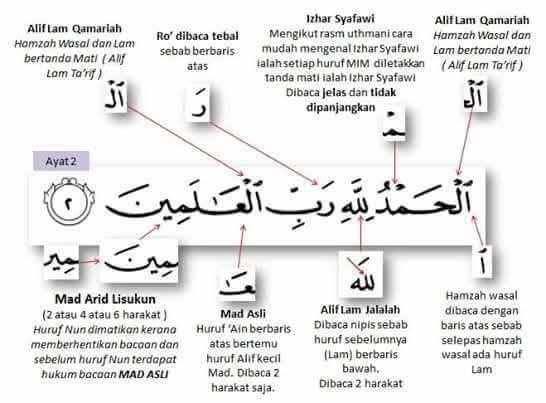 Alif Lam Qamariah
Hamzah Wasal dan Lam
bertanda Mati ( Alif
Lam Ta'rif )
ٱلْ
Ro' dibaca tebal
sebab berbaris
atas
رَ
Izhar Syafawi
Mengikut rasm uthmani cara
mudah mengenal Izhar Syafawi
ialah setiap huruf MIM diletakkan
tanda mati ialah Izhar Syafawi
Dibaca jelas dan tidak
dipanjangkan
مْ
Alif Lam Qamariah
Hamzah Wasal dan
Lam bertanda Mati
( Alif Lam Ta'rif )
ٱلْ
Ayat 2
ٱلْحَمْدُ لِلَّهِ رَبِّ ٱلْعَـٰلَمِينَ ٢
مِيـ
مِينَ
Mad Arid Lisukun
(2 atau 4 atau 6 harakat )
Huruf Nun dimatikan kerana
memberhentikan bacaan dan
sebelum huruf Nun terdapat
hukum bacaan MAD ASLI
عَـٰ
Mad Asli
Huruf 'Ain berbaris
atas bertemu
huruf Alif kecil
Mad. Dibaca 2
harakat saja.
لِلَّهِ
Alif Lam Jalalah
Dibaca nipis sebab
huruf sebelumnya
(Lam) berbaris
bawah.
Dibaca 2 harakat
ٱ
Hamzah wasal
dibaca dengan
baris atas sebab
selepas hamzah
wasal ada huruf
Lam